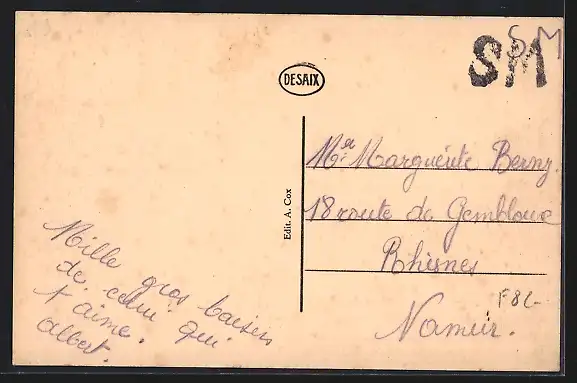 DESAIX
SM
SM
Edit. A. Cox
Mlle Marguerite Berny.
18 route de Gembloux
Rhisnes
Namur.
F82-
Mille gros baisers
de celui qui
t'aime.
albert.